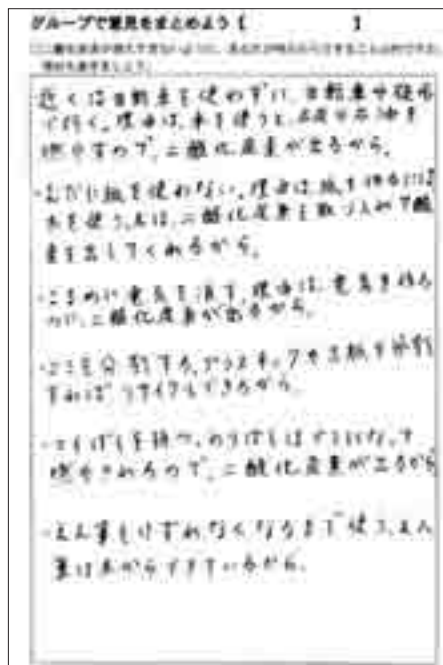 グループで意見をまとめよう【 】
二酸化炭素が増えすぎないように、
近くは自動車を使わずに、自転車や徒歩
で行く。理由は、車を使うと、石炭や石油を
燃やすので、二酸化炭素が出るから。
・むだに紙を使わない。理由は紙を作るには
木を使う。木は、二酸化炭素を取り入れて酸
素を出してくれるから。
・こまめに電気を消す。理由は、電気を作る
のに、二酸化炭素が出るから。
・ごみを分別する。プラスチックや古紙を分別
すれば リサイクルできるから。
を持つ。わりばしはごみになって
燃やされるので、二酸化炭素が出るから
・えん筆をけずれなくなるまで使う。えん
筆は木からできているから。